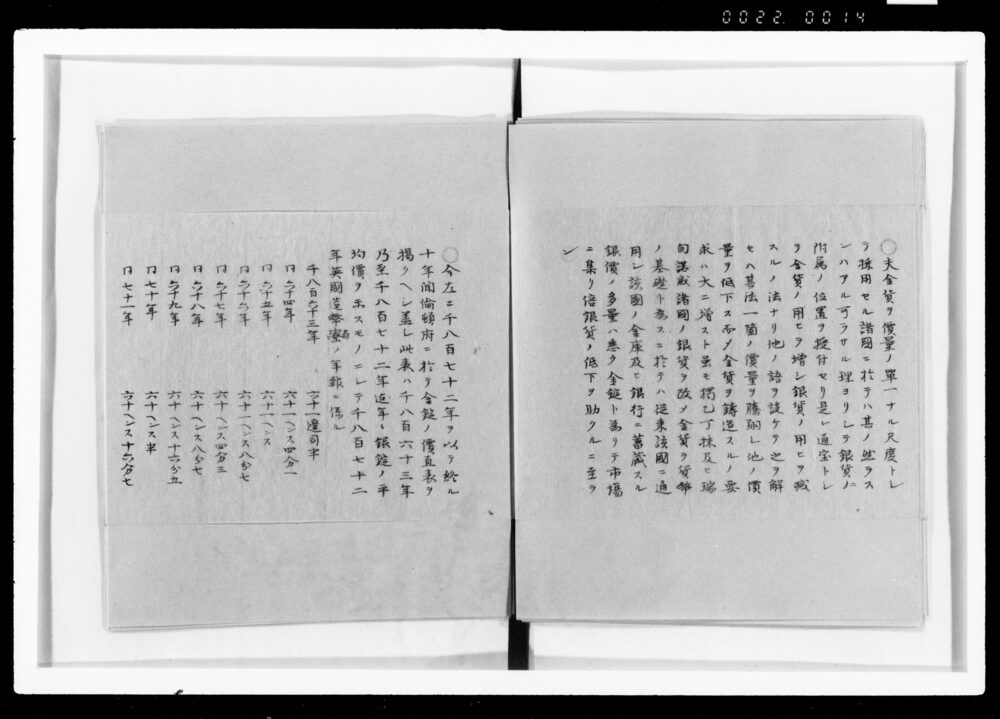 0022.0014
○夫金貨ヲ價量ノ單一ナル尺度トシ
テ採用セル諸國ニ於テハ甚ノ然ラス
ンハアル可ラサル理ヨリシテ銀貨ニ
附属ノ位置ヲ授付セリ是レ通宝トシ
テ金貨ノ用ヒヲ増シ銀貨ノ用ヒヲ減
スルノ法ナリ他ノ語ヲ設ケテ之ヲ解
セハ甚法一箇ノ價量ヲ騰貴シ他ノ價
量ヲ低下ス而メ金貨ヲ鋳造スルノ要
求ハ大ニ増スト虽モ獨乙丁抹及ヒ瑞
甸諾威諸國ノ銀貨ヲ改メ金貨ヲ貨幣
ノ基礎ト為スニ於テハ従来該國ニ通
用シ該國ノ金庫及ヒ銀行ニ蓄蔵スル
銀價ノ多量ハ悉ク金錠ト為リテ市場
ニ集リ倍銀貨ノ低下ヲ助クルニ至ラ
ン
○今左ニ千八百七十二年ヲ以テ終ル
十年間倫頓府ニ於テ金錠ノ價直表ヲ
掲クヘシ盖シ此表ハ千八百六十三年
乃至千八百七十二年迄年々銀錠ノ平
均價ヲ示スモノニシテ千八百七十二
年英國造幣局寮ノ年報ニ係ル
千八百六十三年 六十一邊司半
同六十四年 六十一ヘンス四分一
同六十五年 六十一ヘンス
同六十六年 六十一ヘンス八分七
同六十七年 六十ヘンス四分三
同六十八年 六十ヘンス八分七
同六十九年 六十ヘンス十六分五
同七十年 六十ヘンス半
同七十一年 六十ヘンス十六分七